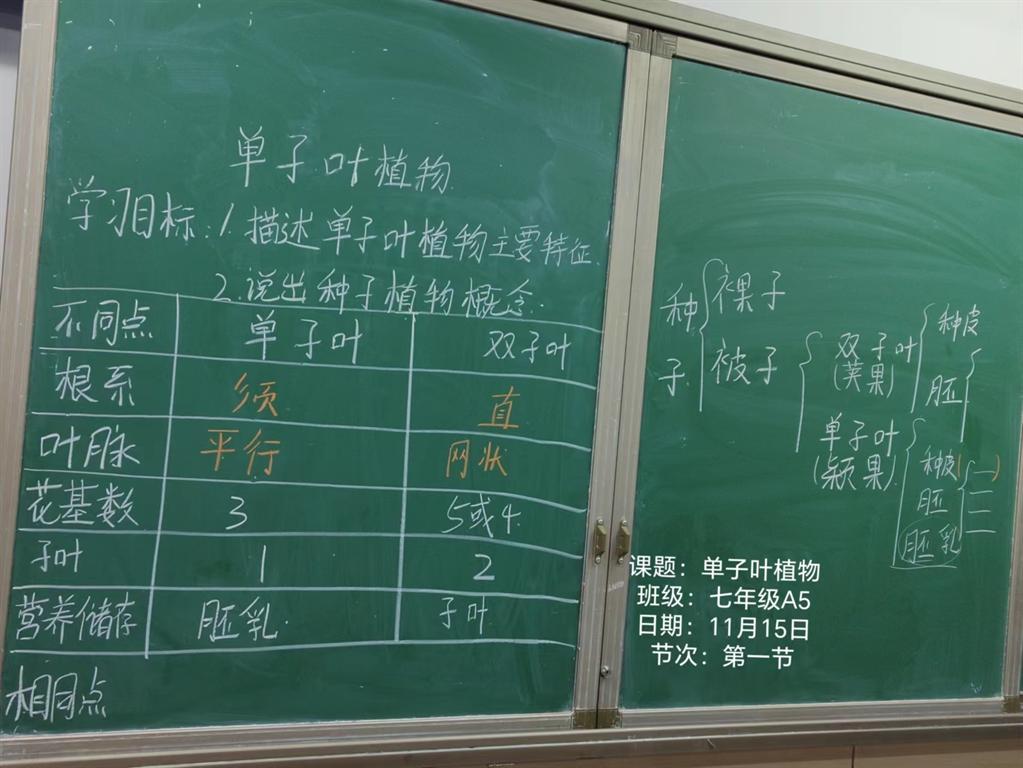 单子叶植物
学习目标:1.描述单子叶植物主要特征.
2.说出种子植物概念.
不同点 单子叶 双子叶
根系 须 直
叶脉 平行 网状
花基数 3 5或4
子叶 1 2
营养储存 胚乳 子叶
相同点
种子
裸子
被子
双子叶
(荚果)
种皮
胚
单子叶
(颖果)
种皮
胚
胚乳
课题：单子叶植物
班级：七年级A5
日期：11月15日
节次：第一节